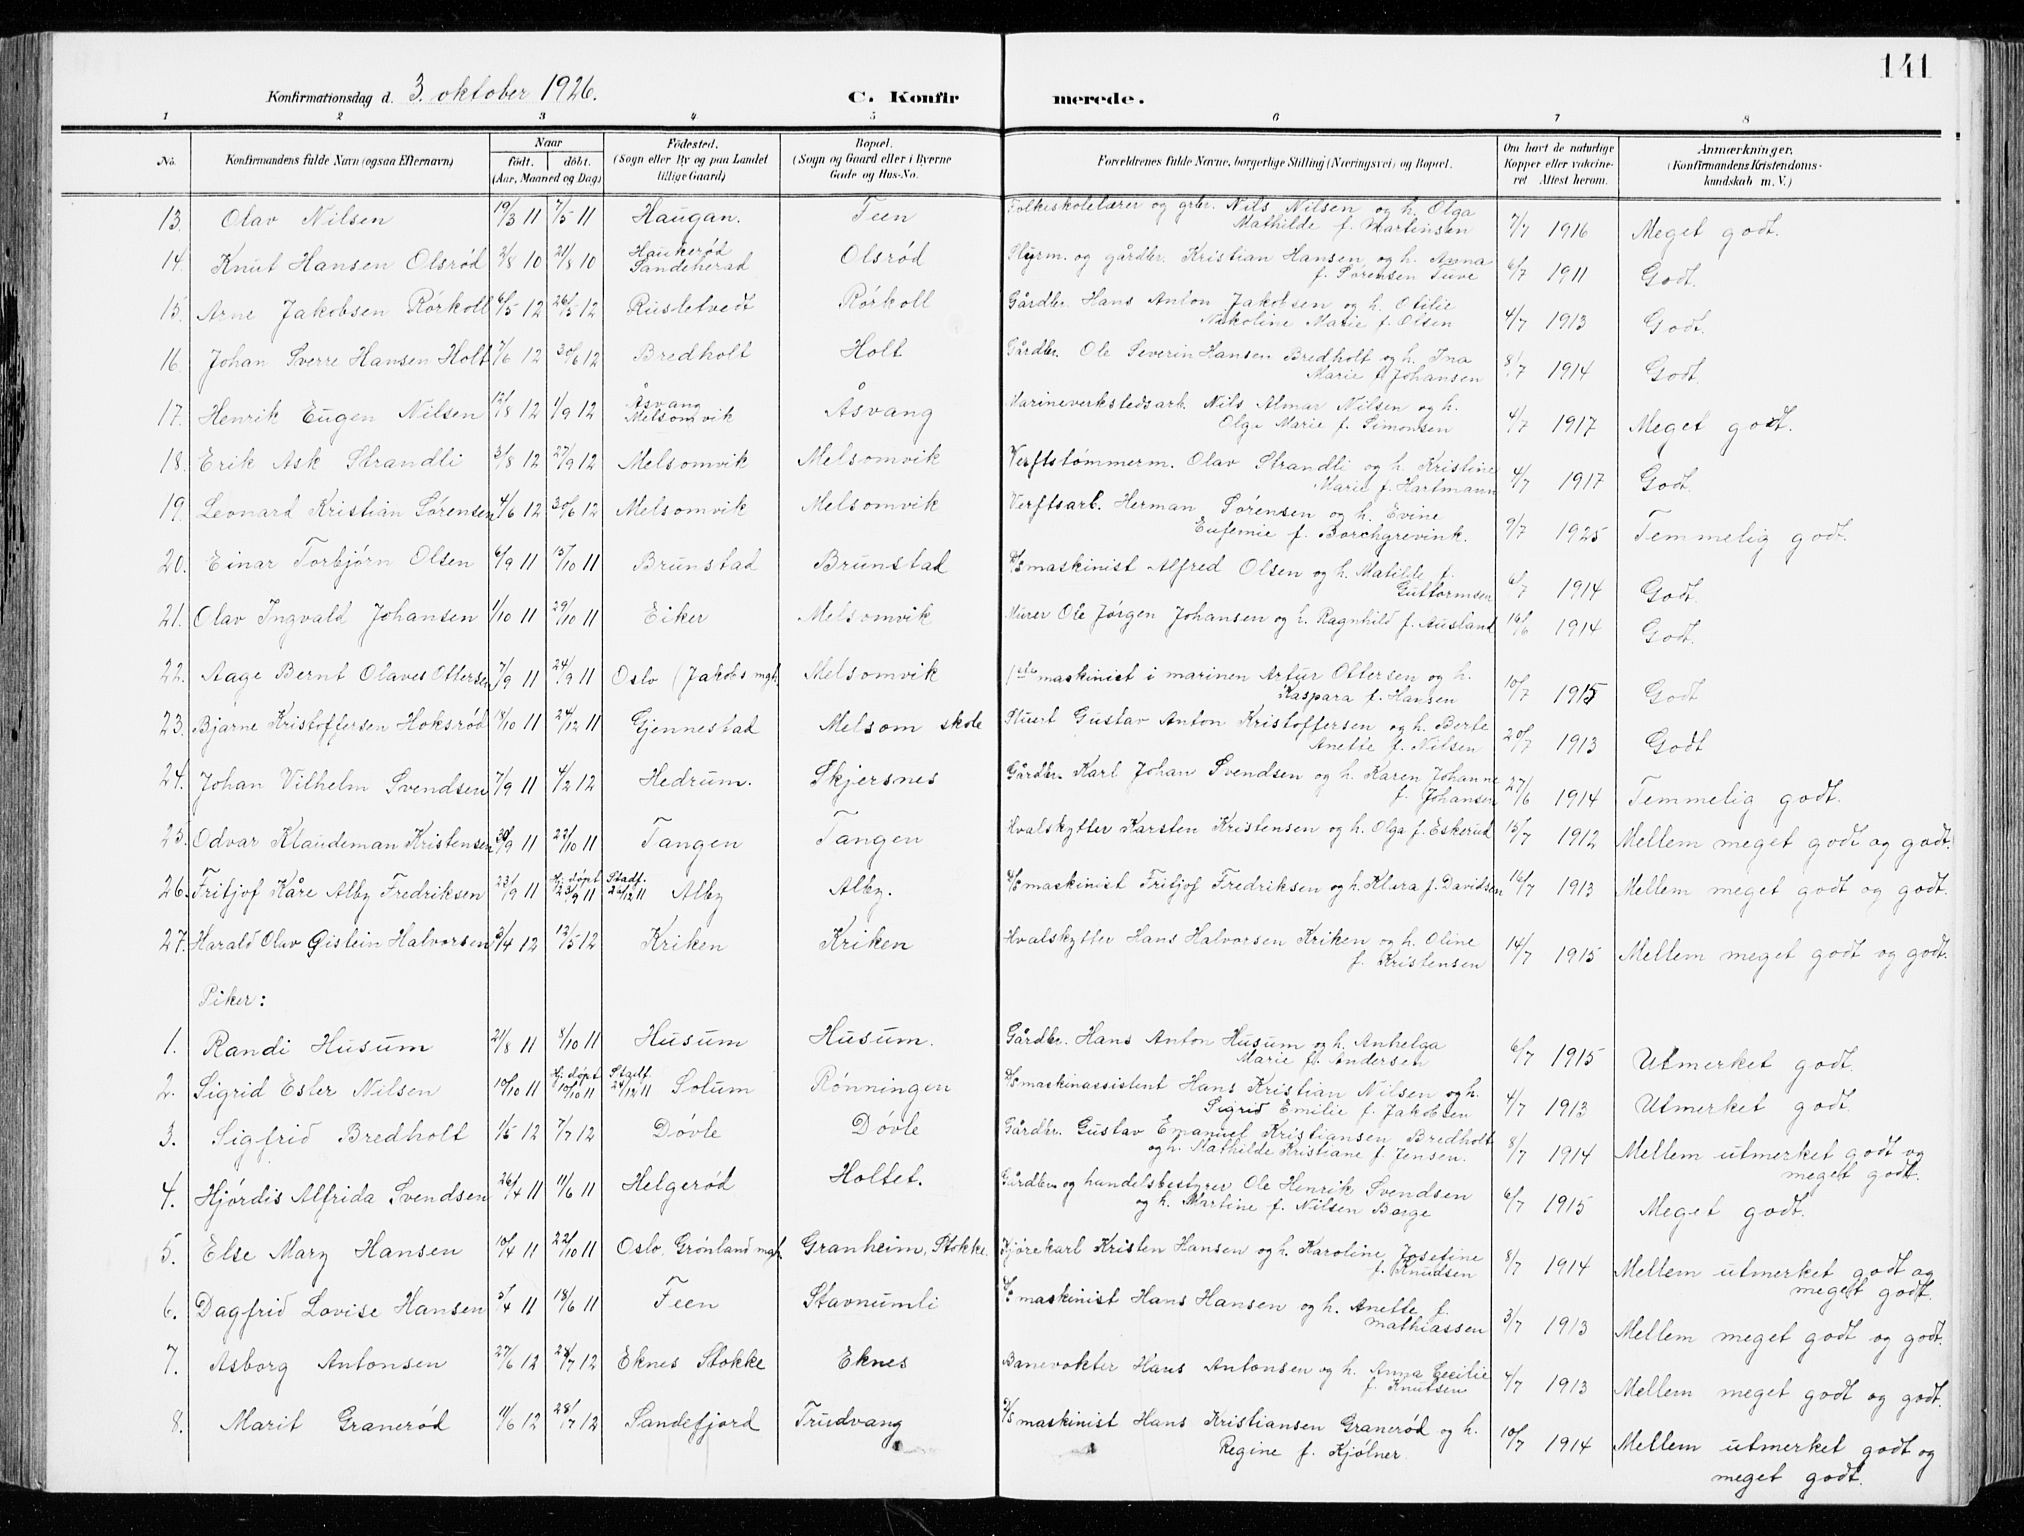 141
Konfirmationsdag d. 3. oktober 1926. C. Konfirmerede.
1 2 3 4 5 6 7 8
No. Konfirmandens fulde Navn (ogsaa Efternavn) Naar født. døbt. (Aar, Maaned og Dag) Fødested. (Sogn eller By og paa Landet tillige Gaard) Bopæl. (Sogn og Gaard eller i Byerne Gade og Hus-No. Forældrenes fulde Navne, borgerlige Stilling (Næringsvei) og Bopæl. Om havt de naturlige Kopper eller vakcineret Attest herom. Anmærkninger. (Konfirmandens Kristendomskundskab m. V.)
13. Olav Nilsen 19/3 11 7/5 11 Haugan. Feen Folkeskolelærer og grbr. Nils Nilsen og h. Olga Mathilde f. Martinsen 7/7 1916 Meget godt.
14. Knut Hansen Olsrød 2/8 10 21/8 10 Haukerød Sandeherad Olsrød Styrm. og gårdbr. Kristian Hansen og h. Anna f. Sørensen Tuve 6/7 1911 Godt.
15. Arne Jakobsen Rørkoll 6/5 12 26/5 12 Rusletvedt Rørkoll Gårdbr. Hans Anton Jakobsen og h. Otilie Nikoline Marie f. Olsen 4/7 1913 Godt.
16. Johan Sverre Hansen Holt 7/6 12 30/6 12 Bredholt Holt Gårdbr. Ole Severin Hansen Bredholt og h. Ina Marie f. Johansen 8/7 1914 Godt.
17. Henrik Eugen Nilsen 12/8 12 1/9 12 Åsvang Melsomvik Åsvang Marineverkstedsarb. Nils Almar Nilsen og h. Olga Marie f. Simonsen 4/7 1917 Meget godt.
18. Erik Ask Strandli 3/8 12 27/9 12 Melsomvik Melsomvik Verftstømmerm. Olav Strandli og h. Kristine Marie f. Hartmann 4/7 1917 Godt.
19. Leonard Kristian Sørensen 4/6 12 30/6 12 Melsomvik Melsomvik Verftsarb. Herman Sørensen og h. Evine Eufemie f. Borchgrevink. 9/7 1925 Temmelig godt.
20. Einar Torbjørn Olsen 6/9 11 15/10 11 Brunstad Brunstad D/S maskinist Alfred Olsen og h. Matilde f. Guttormsen 6/7 1914 Godt.
21. Olav Ingvald Johansen 1/10 11 29/10 11 Eiker Melsomvik Murer Ole Jørgen Johansen og h. Ragnhild f. Ausland 16/6 1914 Godt.
22. Aage Bernt Olaves Ottersen 7/9 11 24/9 11 Oslo (Jakobs mgh. Melsomvik 1ste maskinist i marinen Artur Ottersen og h. Kaspara f. Hansen 10/7 1915 Godt
23. Bjarne Kristoffersen Hoksrød 18/10 11 24/12 11 Gjennestad Melsom skole Stuert Gustav Anton Kristoffersen og h. Berte Anette f. Nilsen 20/7 1913 Godt
24. Johan Vilhelm Svendsen 7/9 11 4/2 12 Hedrum. Skjersnes Gårdbr. Karl Johan Svendsen og h. Karen Johanne f. Johansen 27/6 1914 Temmelig godt.
25. Odvar Klaudeman Kristensen 30/9 11 22/10 11 Tangen Tangen Hvalskytter Karsten Kristensen og h. Olga f. Eskerud 15/7 1912 Mellem meget godt og godt.
26. Fritjof Kåre Alby Fredriksen 23/9 11 Hj. døpt 23/9 11 Stadf. 26/12 11 Alby Alby. D/S maskinist Fritjof Fredriksen og h. Klara f. Davidsen 16/7 1913 Mellem meget godt og godt.
27. Harald Olav Gislein Halvorsen 3/4 12 12/5 12 Kriken Kriken Hvalskytter Hans Halvorsen Kriken og h. Oline f. Kristensen 14/7 1915 Mellem meget godt og godt.
Piker:
1. Randi Husum 21/8 11 8/10 11 Husum Husum. Gårdbr. Hans Anton Husum og h. Anhelga Marie f. Andersen 6/7 1915 Utmerket godt.
2. Sigrid Ester Nilsen 10/10 11 Hj. døpt 10/10 11 Stadf. 24/12 11 Solum Rønningen D/S maskinassistent Hans Kristian Nilsen og h. Sigrid Emilie f. Jakobsen 4/7 1913 Utmerket godt.
3. Sigfrid Bredholt 1/5 12 7/7 12 Døvle Døvle Gårdbr. Gustav Emanuel Kristiansen Bredholt og h. Mathilde Kristiane f. Jensen. 8/7 1914 Mellem utmerket godt og meget godt.
4. Hjørdis Alfrida Svendsen 26/4 11 11/6 11 Helgerød Holtet. Gårdbr. og handelsbestyrer Ole Henrik Svendsen og h. Martine f. Nilsen Borge 6/7 1915 Meget godt.
5. Else Mary Hansen 10/4 11 22/10 11 Oslo, Grønland mgh. Granheim, Stokke. Kjørekarl Kristen Hansen og h. Karoline Josefine f. Knudsen 8/7 1914 Mellem utmerket godt og meget godt.
6. Dagfrid Lovise Hansen 3/4 11 18/6 11 Feen Stavnumli D/S maskinist Hans Hansen og h. Anette f. Mathiassen 3/7 1913 Mellem meget godt og godt.
7. Asborg Antonsen 27/6 12 28/7 12 Eknes Stokke Eknes Banevokter Hans Antonsen og h. Anna Cecilie f. Knutsen 4/7 1913 Mellem meget godt og godt.
8. Marit Granerød 11/6 12 28/7 12 Sandefjord Trudvang D/S maskinist Hans Kristiansen Granerød og h. Regine f. Kjølner. 10/7 1914 Mellem utmerket godt og meget godt.